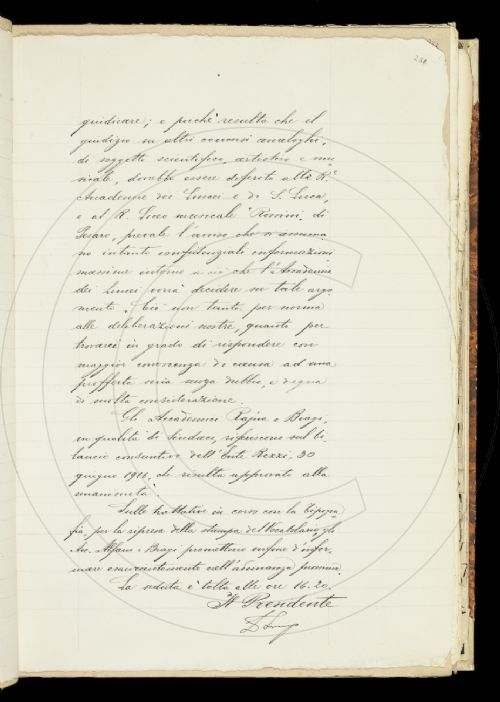 giudicare; e poichè resulta che il
giudizio su altri concorsi analoghi,
di soggetto scientifico, artistico e mu-
sicale, dovrebbe essere deferito alle R.e
Accademie dei Lincei e di S. Luca,
e al R. Liceo musicale Rossini, di
Pesaro, prevale l'avviso che si assuma-
no intanto confidenziali informazioni
massime intorno a ciò che l'Accademia
dei Lincei vorrà decidere su tale argo-
mento. Ciò non tanto per norma
alle deliberazioni nostre, quanto per
trovarci in grado di rispondere con
maggior conoscenza di causa ad una
profferta seria senza dubbio, e degna
di molta considerazione.
Gli Accademici Rajna e Biagi,
in qualità di Sindaci, riferiscono sul bi-
lancio consuntivo dell'Ente Rezzi, 30
giugno 1918, che risulta approvato alla
unanimità.
Sulle trattative in corso con la tipogra-
fia per la ripresa della stampa del Vocabolario, gli
Acc. Biagi promettono infine d'infor-
mare nell'adunanza prossima.
La seduta è tolta alle ore 16.20.
Il Presidente